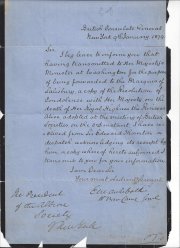 British Consulate General
New York 9 February 1879
Sir
I beg leave to inform you that
having transmitted to Her Majesty's
Minister at Washington for the purpose
of being forwarded to the Marquis of
Salisbury, a copy of the Resolution of
Condolence with Her Majesty on the
death of Her Royal Highness the Princess
Alice adopted at the meeting of British
Societies on the
received from Sir Edward Thornton a
despatch acknowledging its receipt by
him, a copy of which I
transmit to you for your information
I am Dear Sir
Your most obedient Servant
E. M. Archibald
H.M. Consul General
The President
of the St. George
Society
New York